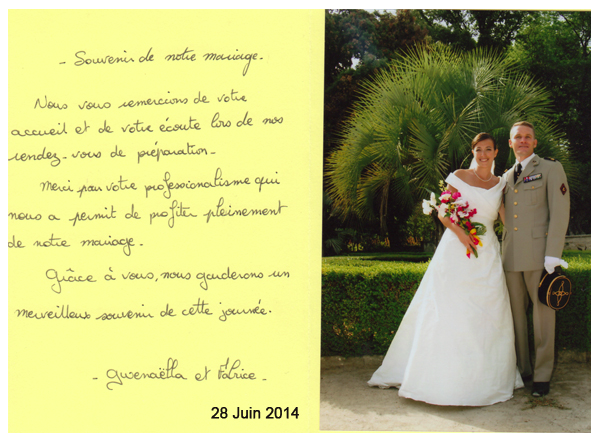 - Souvenir de notre mariage.
Nous vous remercions de votre
accueil et de votre écoute lors de nos
rendez-vous de préparation-
Merci pour votre professionalisme qui
nous a permit de profiter pleinement
de notre mariage.
Grâce à vous, nous garderons un
merveilleux souvenir de cette journée.
- Gwenaëlla et Fabrice -
28 Juin 2014